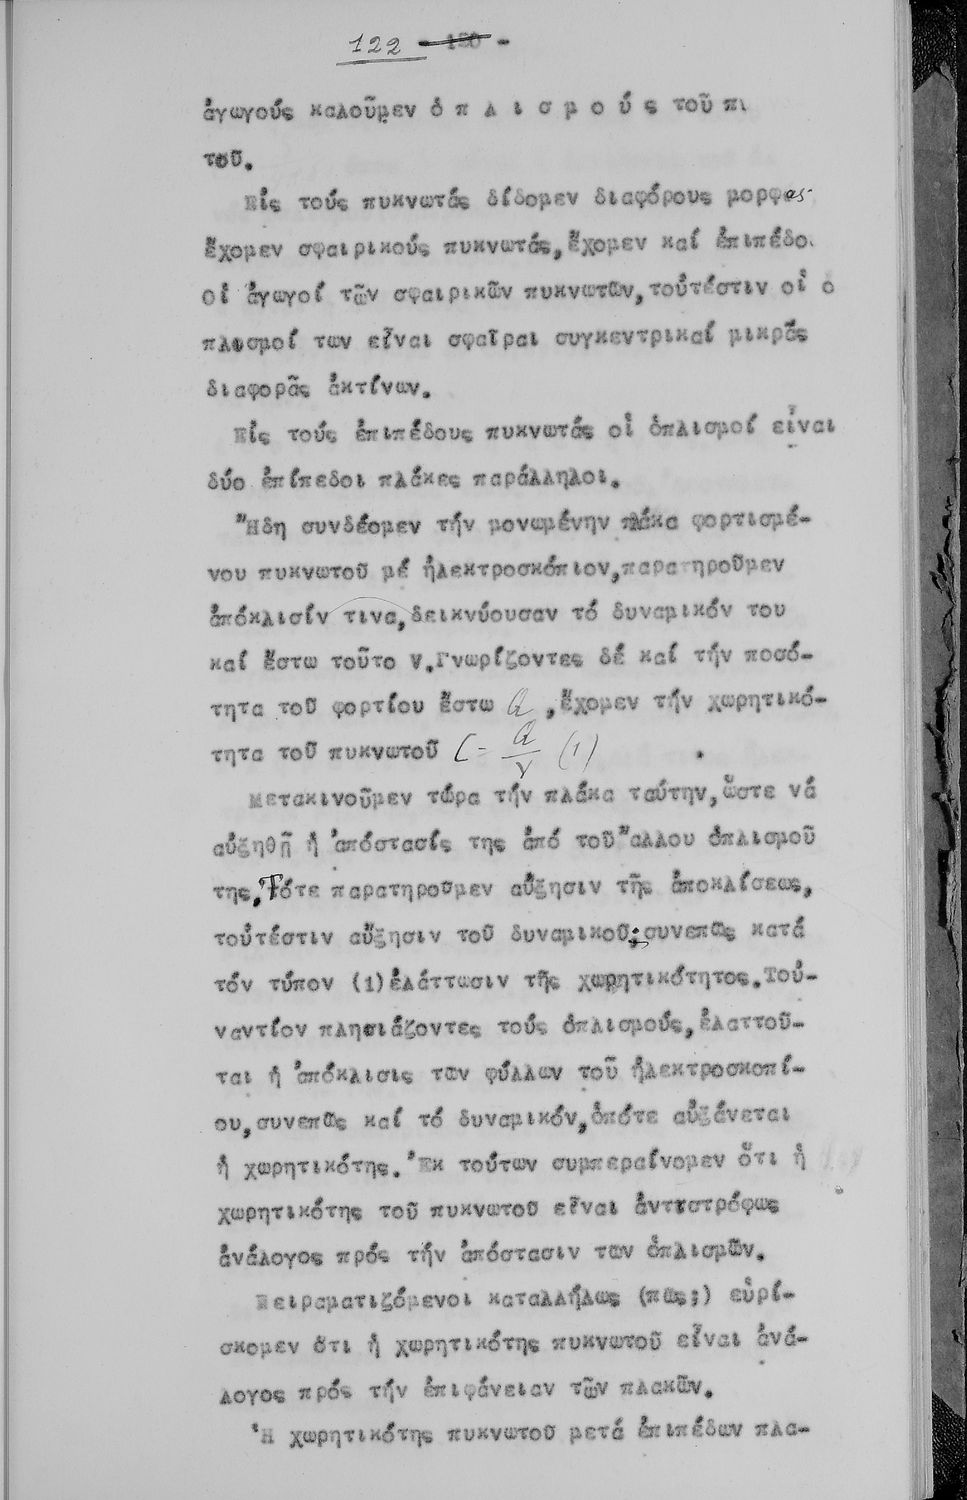 122 - 120 -
ἀγωγούς καλοῦμεν ὁ π λ ι σ μ ο ύ ς τοῦ πυ
τοῦ.
Εἰς τούς πυκνωτάς δίδομεν διαφόρους μορφας
ἔχομεν σφαιρικούς πυκνωτάς,ἔχομεν καί ἐπιπέδο
Οἱ ἀγωγοί τῶν σφαιρικῶν πυκνωτῶν,τοὐτέστιν οἱ ὁ
πλισμοί των εἶναι σφαῖραι συγκεντρικαί μικρᾶς
διαφορᾶς ἀκτίνων.
Εἰς τούς ἐπιπέδους πυκνωτάς οἱ ὁπλισμοί εἶναι
δύο ἐπίπεδοι πλάκες παράλληλοι.
Ἤδη συνδέομεν τήν μονωμένην πλάκα φορτισμέ-
νου πυκνωτοῦ μέ ἠλεκτροσκόπιον,παρατηροῦμεν
ἀπόκλισίν τινα,δεικνύουσαν τό δυναμικόν του
καί ἔστω τοῦτο V.Γνωρίζοντες δέ καί τήν ποσό-
τητα τοῦ φορτίου ἔστω Q ,ἔχομεν τήν χωρητικό-
τητα τοῦ πυκνωτοῦ C = Q/V (1)
Μετακινοῦμεν τώρα τήν πλάκα ταύτην,ὥστε νά
αὐξηθῇ ἡ ἀπόστασίς της ἀπό τοῦ ἄλλου ὁπλισμοῦ
της.Τότε παρατηροῦμεν αὔξησιν τῆς ἀποκλίσεως,
τοὐτέστιν αὔξησιν τοῦ δυναμικοῦ;συνεπῶς κατά
τόν τύπον (1)ἐλάττωσιν τῆς χωρητικότητος.Τοὐ-
ναντίον πλησιάζοντες τούς ὁπλισμούς,ἐλαττοῦ-
ται ἡ ἀπόκλισις των φύλλων τοῦ ἠλεκτροσκοπί-
ου,συνεπῶς καί τό δυναμικόν,ὁπότε αὐξάνεται
ἡ χωρητικότης.Ἐκ τούτων συμπεραίνομεν ὅτι ἡ
χωρητικότης τοῦ πυκνωτοῦ εἶναι ἀντιστρόφως
ἀνάλογος πρός τήν ἀπόστασιν των ὁπλισμῶν.
Πειραματιζόμενοι καταλλήλως (πῶς;) εὑρί-
σκομεν ὅτι ἡ χωρητικότης πυκνωτοῦ εἶναι ἀνά-
λογος πρός τήν ἐπιφάνειαν τῶν πλακῶν.
Ἡ χωρητικότης πυκνωτοῦ μετά ἐπιπέδων πλα-